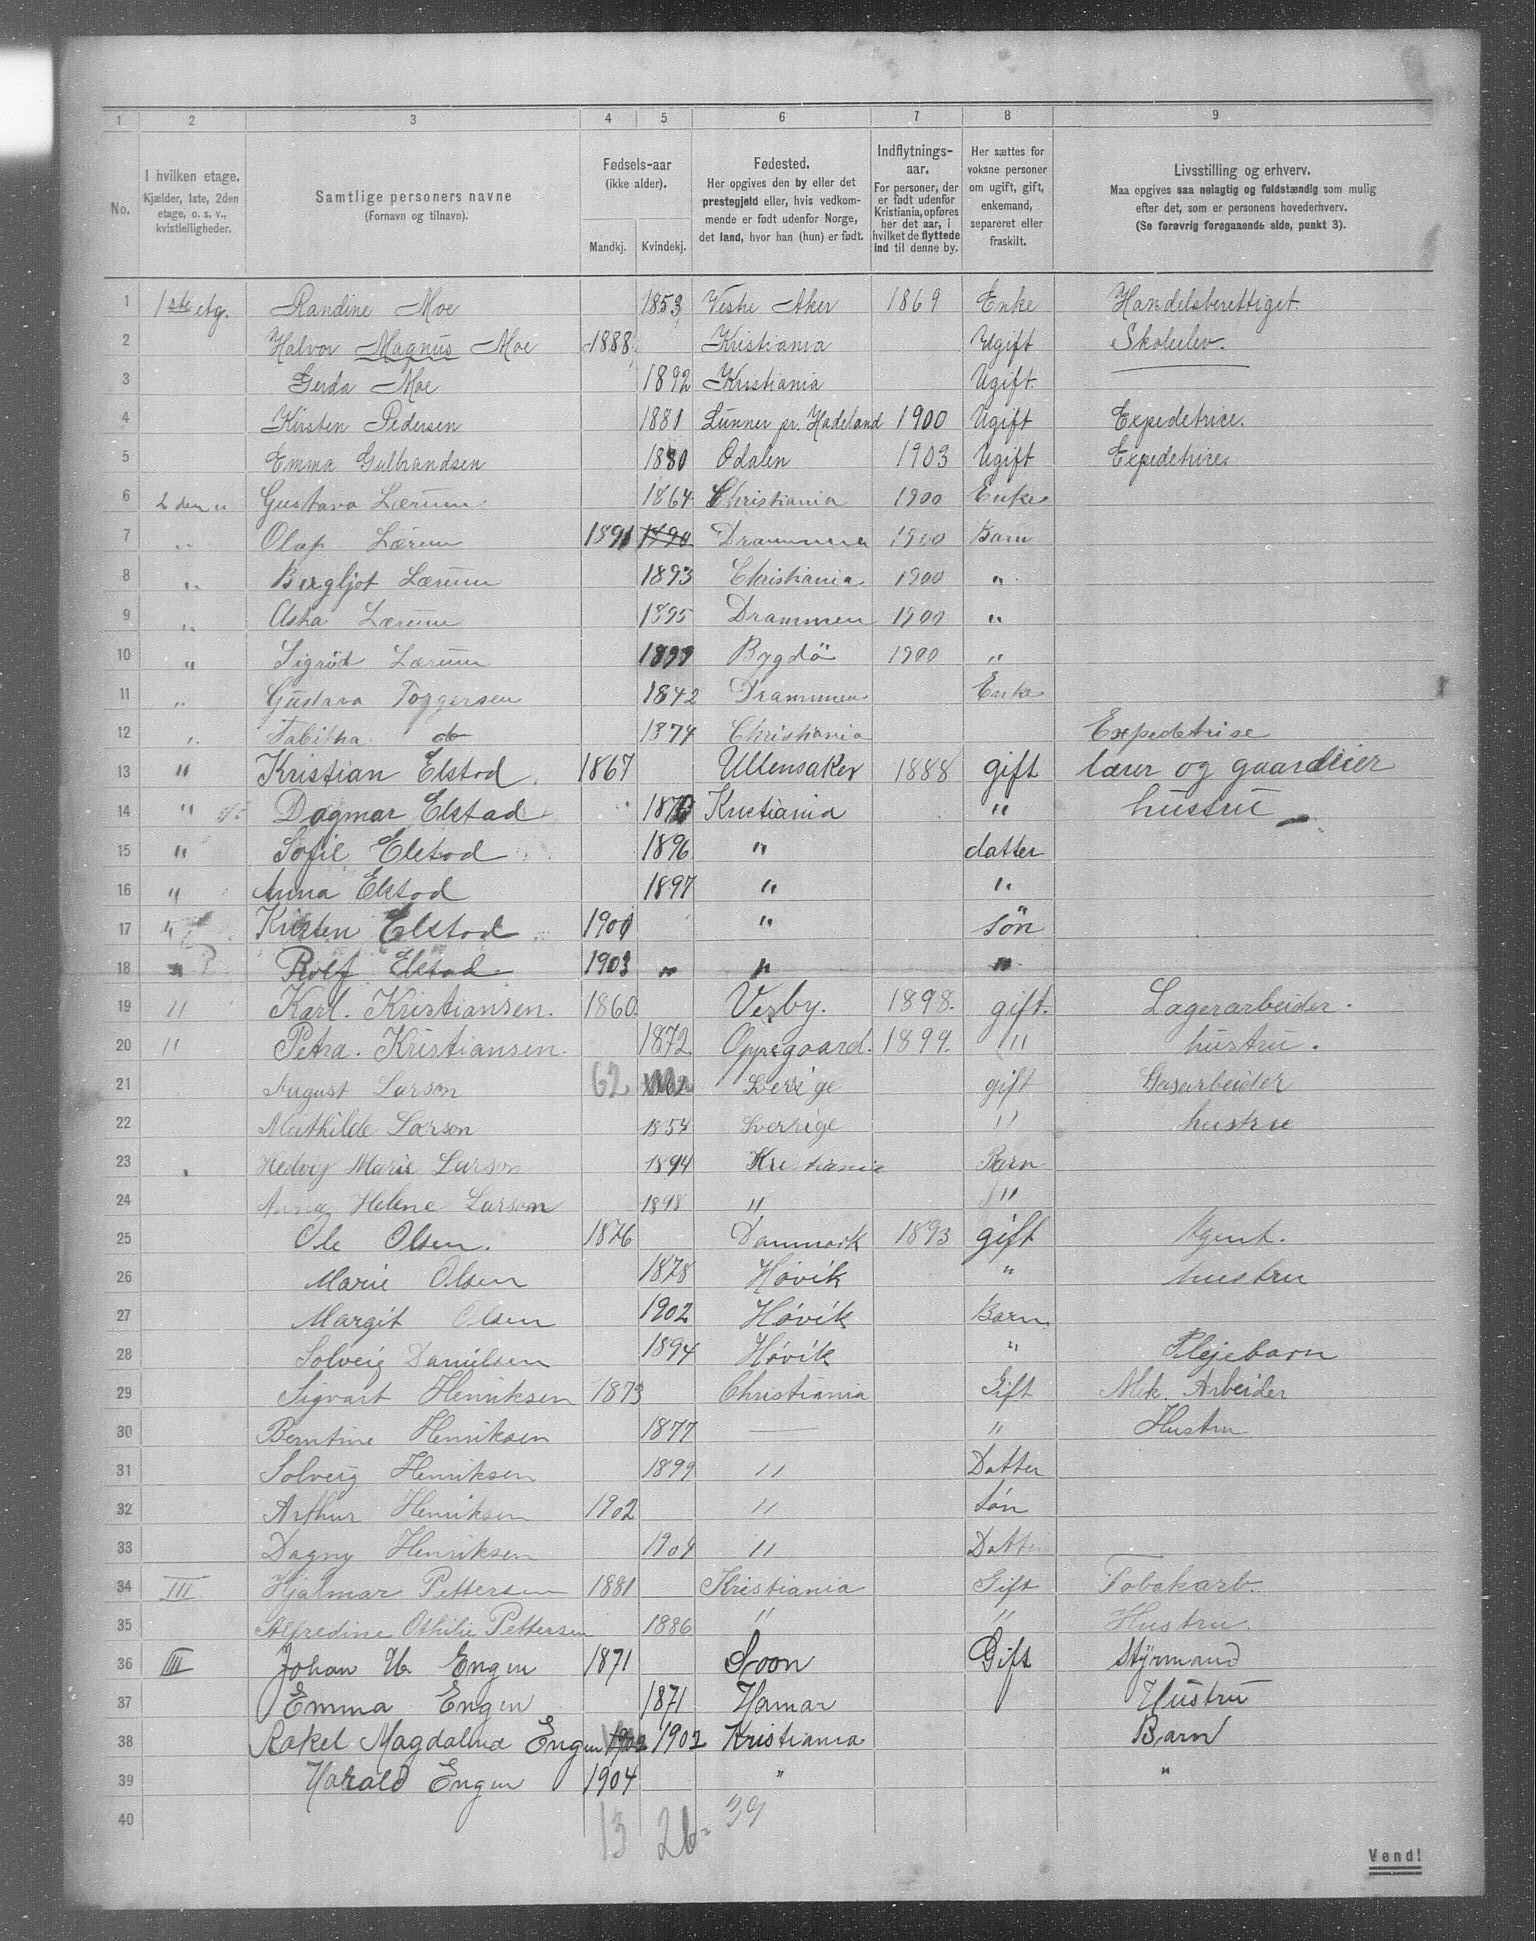 1 2 3 4 5 6 7 8 9
No. | I hvilken etage. Kjælder, 1ste, 2den etage, o. s. v., kvistleiligheder. | Samtlige personers navne (Fornavn og tilnavn). | Fødsels-aar (ikke alder). Mandkj. Kvindekj. | Fødested. Her opgives den by eller det prestegjeld eller, hvis vedkommende er født udenfor Norge, det land, hvor han (hun) er født. | Indflytnings-aar. For personer, der er født udenfor Kristiania, opføres her det aar, i hvilket de flyttede ind til denne by. | Her sættes for voksne personer om ugift, gift, enkemand, separeret eller fraskilt. | Livsstilling og erhverv. Maa opgives saa nøiagtig og fuldstændig som mulig efter det, som er personens hovederhverv. (Se forøvrig foregaaende side, punkt 3).
1 1ste etg. Randine Moe 1853 Vestre Aker 1869 Enke Handelsberettiget.
2 Halvor Magnus Moe 1888 Kristiania Ugift Skoleelev.
3 Gerda Moe 1892 Kristiania Ugift.
4 Kirsten Pedersen 1881 Lunner pr. Hadeland 1900 Ugift Expedetrice.
5 Emma Gulbrandsen 1880 Odalen 1903 Ugift Expedetrice.
6 2den " Gustava Lærum 1864 Christiania 1900 Enke
7 " Olaf Lærum 1891 1890 Drammen 1900 Barn
8 " Bergljot Lærum 1893 Christiania 1900 "
9 " Asta Lærum 1895 Drammen 1900 "
10 " Sigrid Lærum 1899 Bygdö 1900 "
11 " Gustava Torgersen 1842 Drammen Enke
12 " Tabitha do 1874 Christiania Expedetrise
13 " Kristian Elstad 1867 Ullensaker 1888 gift lærer og gaardeier
14 " Dagmar Elstad Kristiania " hustru
15 " Sofie Elstad 1896 " datter
16 " Anna Elstad 1897 " "
17 " Kirsten Elstad 1901 " søn
18 " Rolf Elstad 1903 " " "
19 " Karl. Kristiansen. 1860. Vesby. 1898. gift. Lagerarbeider.
20 " Petra. Kristiansen. 1872. Oppegaard. 1899. " hustru.
21 August Larson 62 1862 Sverige gift Gasarbeider
22 Mathilde Larson 1854 Sverrige " hustru
23 Hedvig Marie Larson 1894 Kristiania Barn
24 Anna Helene Larson 1898 " "
25 Ole Olsen. 1876 Danmark 1893 gift Agent.
26 Marie Olsen 1878 Høvik " hustru
27 Margit Olsen 1902 Høvik Barn
28 Solveig Danielsen 1894 Høvik " Plejebarn
29 Sigvart Henriksen 1873 Christiania Gift Mek. Arbeider
30 Berntine Henriksen 1877 — " Hustru
31 Solveig Henriksen 1899 " Datter
32 Arthur Henriksen 1902 " Søn
33 Dagny Henriksen 1904 " Datter
34 III Hjalmar Pettersen 1881 Kristiania Gift Tobakarb.
35 Alfredine Othilie Pettersen 1886 " " Hustru.
36 IIII Johan Engen 1871 Soon Gift Styrmand
37 Emma Engen 1871 Hamar Hustru
38 Rakel Magdalena Engen 1902 1902 Kristiania Barn
39 Harald Engen 1904 " "
40
13 26 39
Vend!